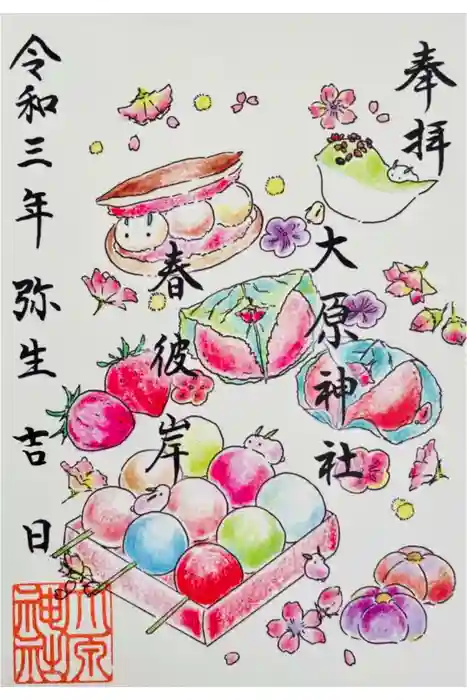 奉拝
大原神社
春彼岸
令和三年弥生吉日
大原神社